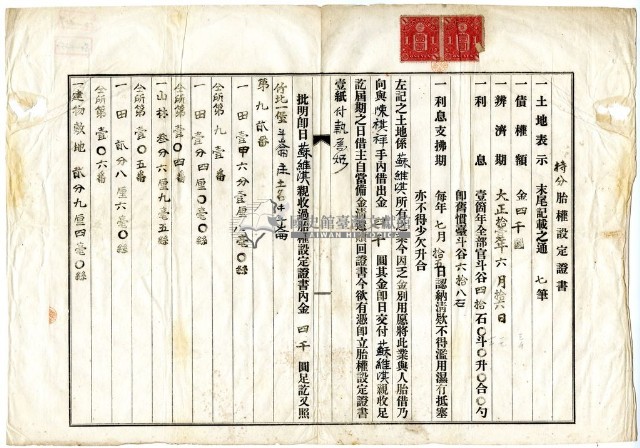 持分胎權設定證書
一土地表示 末尾記載之通 七筆
一債權額 金四千圓
一辨濟期 大正拾壹年六月拾六日
一利息 壹箇年全部官斗谷四拾石〇斗〇升〇合〇勺
即舊慣臺斗谷六拾八石
一利息支拂期 每年七月拾五日認納清欵不得濫用濕有抵塞
亦不得少欠升合
左記之土地係蘇維淇所有之業今因乏金別用愿將此業與人胎借乃
向與陳祺祥手內借出金四千圓其金即日交付蘇維淇親收足
訖屆期之日借主自當備金清還贖回證書今欲有憑即立胎權設定證書
壹紙付執爲炤
批明即日蘇維淇親收過胎權設定證書內金四千圓足訖又照
竹北一堡斗崙庄土名斗崙
第九貳番
一田壹甲六分壹厘毫〇絲
仝所第九壹番
一田壹分四厘〇毫〇絲
仝所第壹〇四番
一山林叁分六厘九毫五絲
仝所第壹〇五番
一田貳分八厘六毫〇絲
仝所第壹〇六番
一建物敷地貳分九厘四毫〇絲
國史館臺灣文獻館
TAIWAN HISTORICA